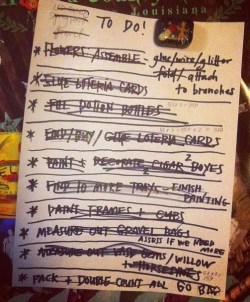 Louisiana
TO DO!
* FLOWERS / ASSEMBLE - glue/wire/glitter
attach
to branches
* GLUE LOTERIA CARDS
* FILL POTION BOTTLES
* FIND/BUY/GLUE LOTERIA CARDS
* PAINT + DECORATE 2 CIGAR 2 BOXES
* FIND 10 MORE TRAYS - FINISH
PAINTING
* PAINT FRAMES +
* MEASURE OUT GRAVEL BAGS
ASSESS IF WE NEED
MORE
* MEASURE OUT /WILLOW
+
* PACK + DOUBLE COUNT ALL GO BAG